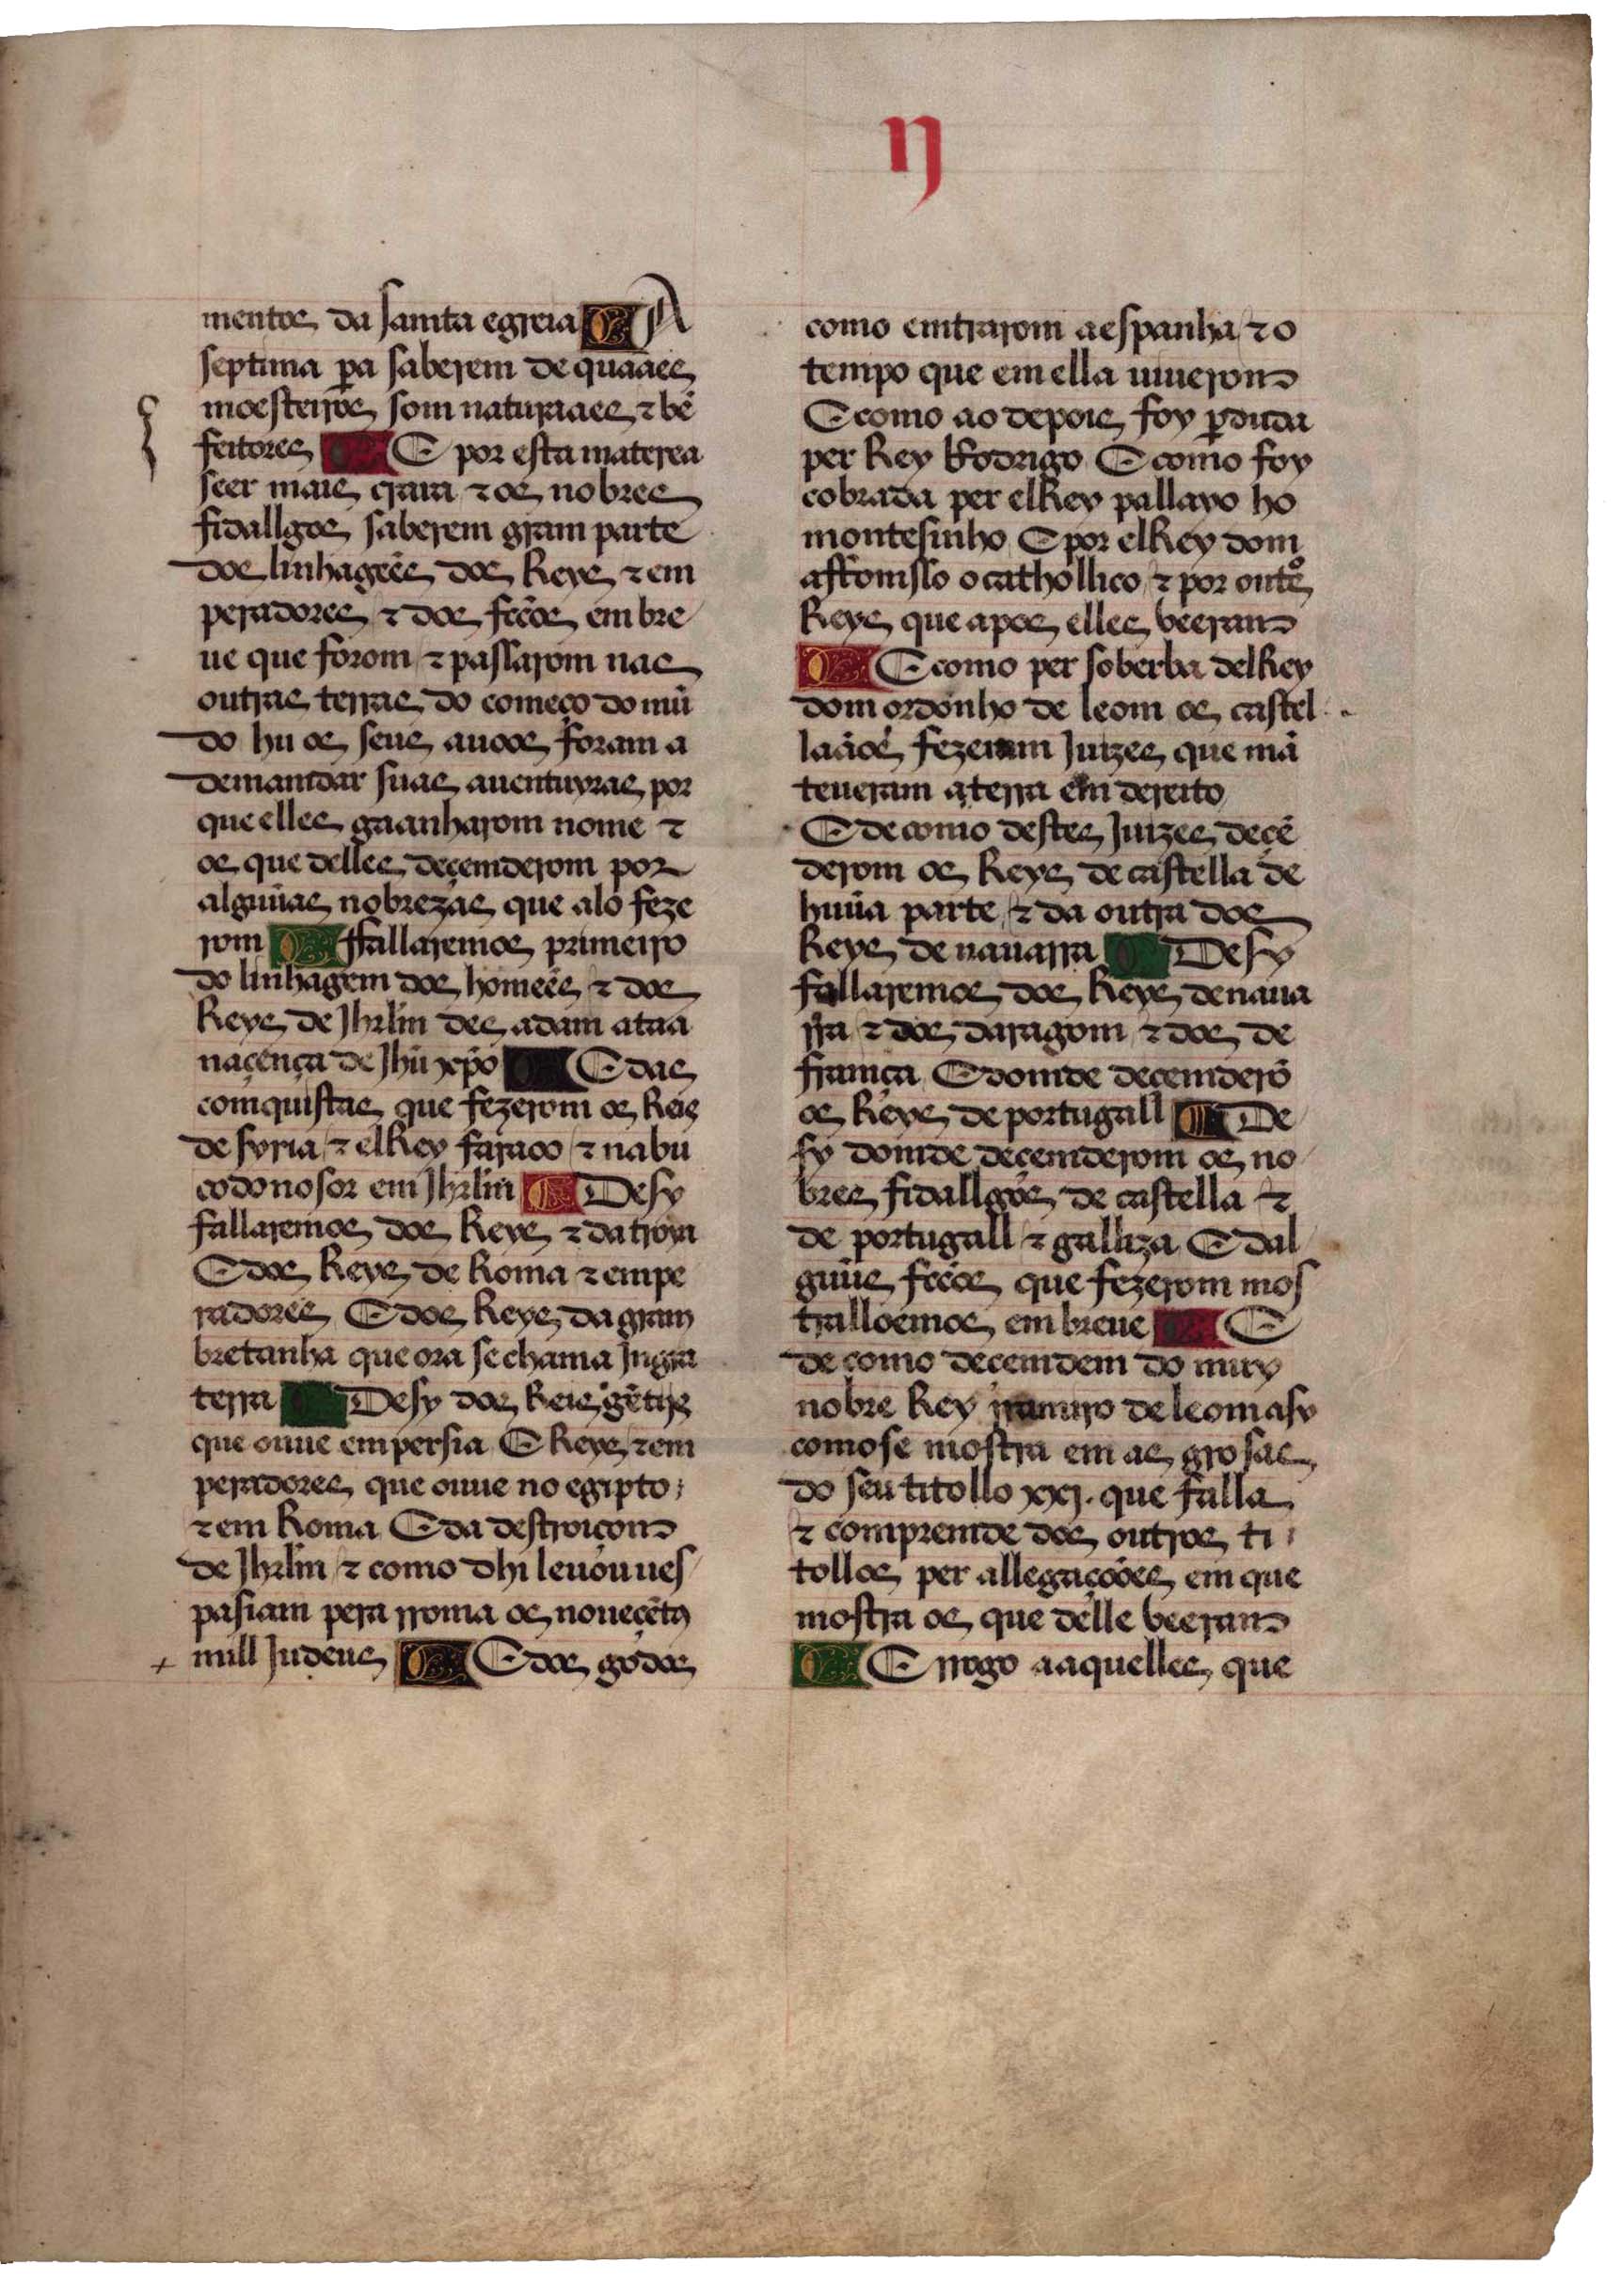 ij
mentos da samta egreia ¶ A
septima pera saberem de quaaes
moesteiros som naturaaes ⁊ bẽ
feitores ¶ E por esta materea
seer mais crara ⁊ os nobres
fidallgos saberem gram parte
dos linhageẽs dos Reys ⁊ em
peradores ⁊ dos fectos em bre
ue que forom ⁊ passarom nas
outras terras do começo do mũ
do hu os seus auoos foram a
demamdar suas auentuyras por
que elles gaanharom nome ⁊
os que delles deçemderom por
alguũas nobrezas que aló feze
rom ¶ ffallaremos primeiro
do linhagem dos homeẽs ⁊ dos
Reys de Jhrlm des adam ataa
naçença de Jhũ xpõ ¶ E das
comquistas que fezerom os Reis
de syria ⁊ elRey faraoo ⁊ nabu
codonosor em Jhrlm ¶ Desy
fallaremos dos Reys ⁊ da troya
E dos Reys de Roma ⁊ empe
radores E dos Reys da gram
bretanha que ora se chama Ingra
terra ¶ Desy dos Reis gẽtijs
que ouue em persia E Reys ⁊ em
peradores que ouue no egipto
⁊ em Roma E da destroiçom
de Jhrlm ⁊ como dhi leuou ues
pasiam pera rroma os noueçẽtos
mill Judeus ¶ E dos godos
como emtrarom a espanha ⁊ o
tempo que em ella uiuerom
E como ao depois foy perduda
per Rey Rodrigo E como foy
cobrada per elRey pallayo ho
montesinho E por elRey dom
affomsso o cathollico ⁊ por outros
Reys que apos elles veeram
¶ E como per soberba delRey
dom ordonho de leom os castel
laãos fezeram Juizes que mã
teueram a terra em dereito
E de como destes Juizes deçẽ
derom os Reys de castella de
huũa parte ⁊ da outra dos
Reys de nauarra ¶ Desy
fallaremos dos Reys de naua
rra ⁊ dos daragom ⁊ dos de
framça E domde decemderõ
os Reys de portugall ¶ De
sy domde deçemderom os no
bres fidallgos de castella ⁊
de portugall ⁊ galliza E dal
guũs fectos que fezerom mos
tralloemos em breue ¶ E
de como deçemdem do muy
nobre Rey rramiro de leom asy
como se mostra em as grosas
do seu titollo xxj. que falla
⁊ compremde dos outros ti
tollos per allegaçoões em que
mostra os que delle veeram
¶ E rrogo aaquelles que